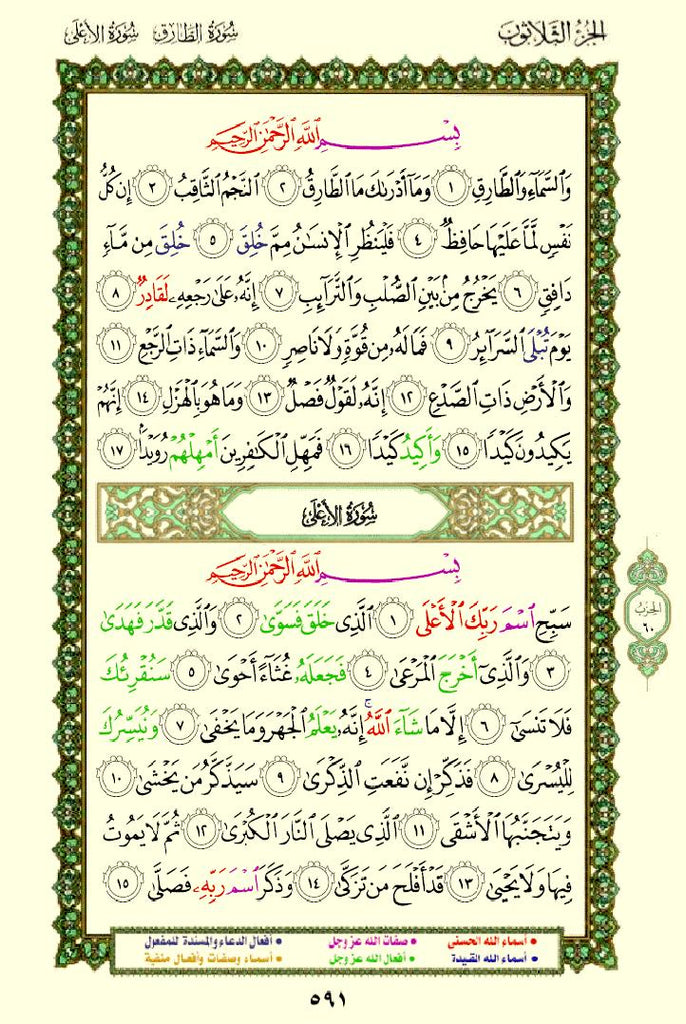 الجزء الثلاثون
سورة الطارق
سورة الأعلى
بِسْمِ ٱللَّهِ ٱلرَّحْمَٰنِ ٱلرَّحِيمِ
وَٱلسَّمَآءِ وَٱلطَّارِقِ ١ وَمَآ أَدْرَىٰكَ مَا ٱلطَّارِقُ ٢ ٱلنَّجْمُ ٱلثَّاقِبُ ٣ إِن كُلُّ
نَفْسٍ لَّمَّا عَلَيْهَا حَافِظٌ ٤ فَلْيَنظُرِ ٱلْإِنسَٰنُ مِمَّ خُلِقَ ٥ خُلِقَ مِن مَّآءٍ
دَافِقٍ ٦ يَخْرُجُ مِنۢ بَيْنِ ٱلصُّلْبِ وَٱلتَّرَآئِبِ ٧ إِنَّهُۥ عَلَىٰ رَجْعِهِۦ لَقَادِرٌ ٨
يَوْمَ تُبْلَى ٱلسَّرَآئِرُ ٩ فَمَا لَهُۥ مِن قُوَّةٍ وَلَا نَاصِرٍ ١٠ وَٱلسَّمَآءِ ذَاتِ ٱلرَّجْعِ ١١
وَٱلْأَرْضِ ذَاتِ ٱلصَّدْعِ ١٢ إِنَّهُۥ لَقَوْلٌ فَصْلٌ ١٣ وَمَا هُوَ بِٱلْهَزْلِ ١٤ إِنَّهُمْ
يَكِيدُونَ كَيْدًا ١٥ وَأَكِيدُ كَيْدًا ١٦ فَمَهِّلِ ٱلْكَٰفِرِينَ أَمْهِلْهُمْ رُوَيْدًۢا ١٧
سورة الأعلى
بِسْمِ ٱللَّهِ ٱلرَّحْمَٰنِ ٱلرَّحِيمِ
سَبِّحِ ٱسْمَ رَبِّكَ ٱلْأَعْلَى ١ ٱلَّذِى خَلَقَ فَسَوَّىٰ ٢ وَٱلَّذِى قَدَّرَ فَهَدَىٰ
٣ وَٱلَّذِىٓ أَخْرَجَ ٱلْمَرْعَىٰ ٤ فَجَعَلَهُۥ غُثَآءً أَحْوَىٰ ٥ سَنُقْرِئُكَ
فَلَا تَنسَىٰٓ ٦ إِلَّا مَا شَآءَ ٱللَّهُ ۚ إِنَّهُۥ يَعْلَمُ ٱلْجَهْرَ وَمَا يَخْفَىٰ ٧ وَنُيَسِّرُكَ
لِلْيُسْرَىٰ ٨ فَذَكِّرْ إِن نَّفَعَتِ ٱلذِّكْرَىٰ ٩ سَيَذَّكَّرُ مَن يَخْشَىٰ ١٠
وَيَتَجَنَّبُهَا ٱلْأَشْقَى ١١ ٱلَّذِى يَصْلَى ٱلنَّارَ ٱلْكُبْرَىٰ ١٢ ثُمَّ لَا يَمُوتُ
فِيهَا وَلَا يَحْيَىٰ ١٣ قَدْ أَفْلَحَ مَن تَزَكَّىٰ ١٤ وَذَكَرَ ٱسْمَ رَبِّهِۦ فَصَلَّىٰ ١٥
الحزب
٦٠
• أسماء الله الحسنى • صفات الله عز وجل • أفعال الدعاء والمسندة للمفعول
• أسماء الله المقيدة • أفعال الله عز وجل • أسماء وصفات وأفعال منفية
٥٩١